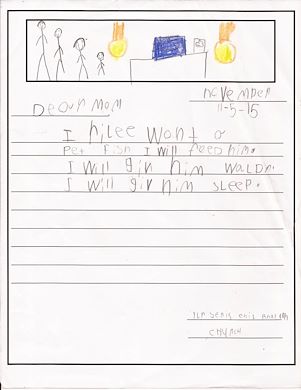 November
11-5-15
Deour mom
I rilee wont a
Pet Fish I will feed him.
I will giv him waldr.
I will giv him sleep.